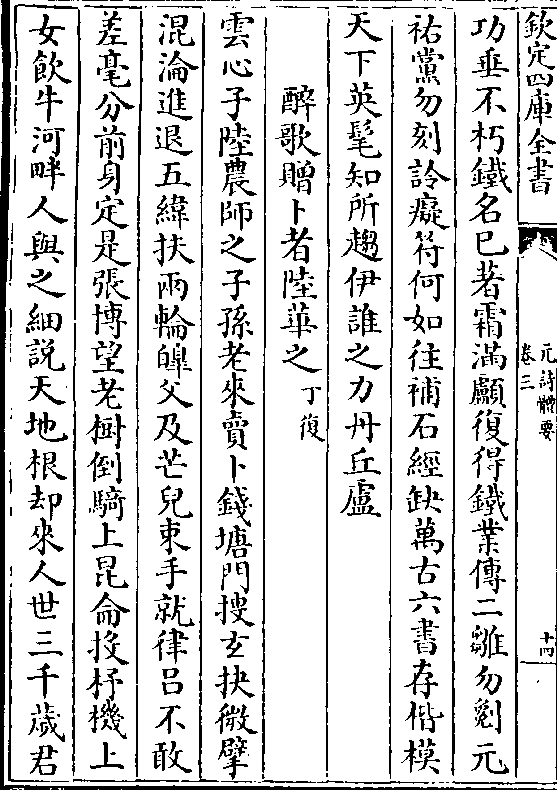 欽定四庫全書
元詩體要
卷三
十四
功垂不朽鐵名已著霜滿顱復得鐵業傳二雛勿劖元
祐黨勿刻詅癡符何如往補石經缺萬古六書存楷模
天下英髦知所趨伊誰之力丹丘盧
醉歌贈卜者陸華之丁復
雲心子陸農師之子孫老來賣卜錢塘門搜玄抉微擘
混淪進退五緯扶兩輪皥父及芒兒束手就律呂不敢
差毫分前身定是張博望老樹倒騎上昆侖投杼機上
女飲牛河畔人與之細說天地根却來人世三千歲君